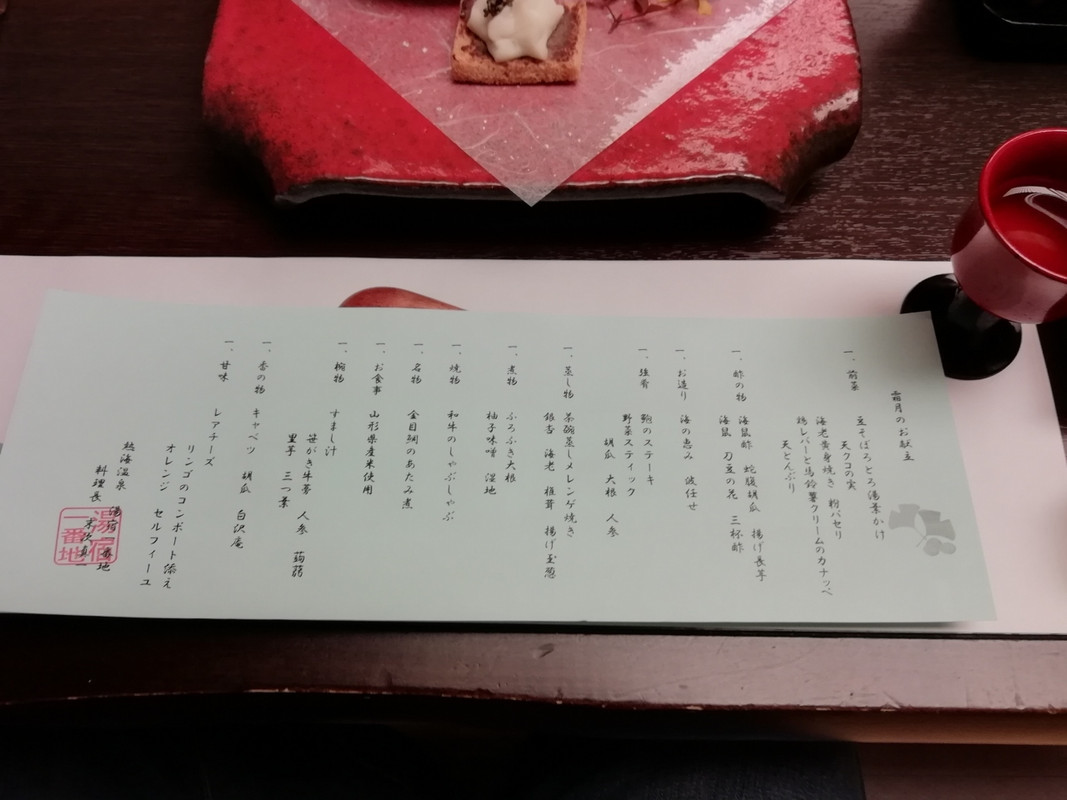 霜月のお献立
一、前菜
豆そぼろとろ湯葉かけ
天クコの実
海老黄身焼き 粉パセリ
鶏レバーと馬鈴薯クリームのカナッペ
天とんぶり
一、酢の物
海鼠酢 蛇腹胡瓜 揚げ長芋
海鼠 刀豆の花 三杯酢
一、お造り
海の恵み 波任せ
一、強肴
鮑のステーキ
野菜スティック
胡瓜 大根 人参
一、蒸し物
茶碗蒸しメレンゲ焼き
銀杏 海老 椎茸 揚げ玉葱
一、煮物
ふろふき大根
柚子味噌 湿地
一、焼物
和牛のしゃぶしゃぶ
一、名物
金目鯛のあたみ煮
一、お食事
山形県産米使用
一、椀物
すまし汁
笹がき牛蒡 人参 蒟蒻
里芋 三つ葉
一、香の物
キャベツ 胡瓜 白沢庵
一、甘味
レアチーズ
リンゴのコンポート添え
オレンジ セルフィーユ
熱海温泉
湯宿一番地
料理長
湯宿
一番地